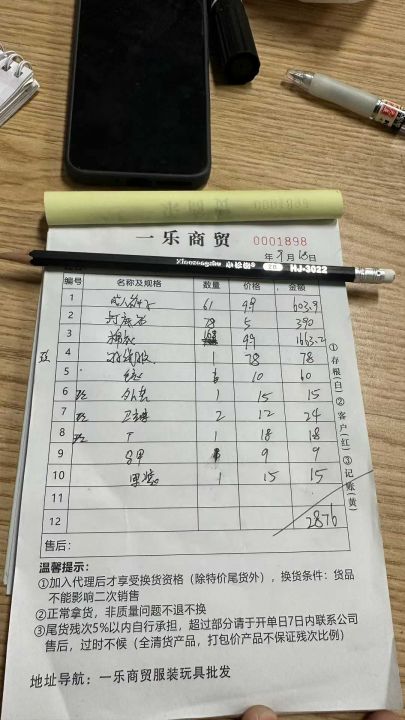 一乐商贸
0001898
年 9月18日
Xiaozongshu 小棕树 2B HJ-3022
编号 名称及规格 数量 价格 金额
1 61 9.9 603.9
2 78 5 390
3 168 9.9 1663.2
4 1 78 78
5 10 60
6 外套 1 15 15
7 卫裤 2 12 24
8 T 1 18 18
9 马甲 9 9
10 1 15 15
11
12 2876
①存根(白)②客户(红)③记账(黄)
售后：
温馨提示：
①加入代理后才享受换货资格（除特价尾货外），换货条件：货品
不能影响二次销售
②正常拿货，非质量问题不退不换
③尾货残次5%以内自行承担，超过部分请于开单日7日内联系公司
售后，过时不候（全清货产品，打包价产品不保证残次比例）
地址导航：一乐商贸服装玩具批发